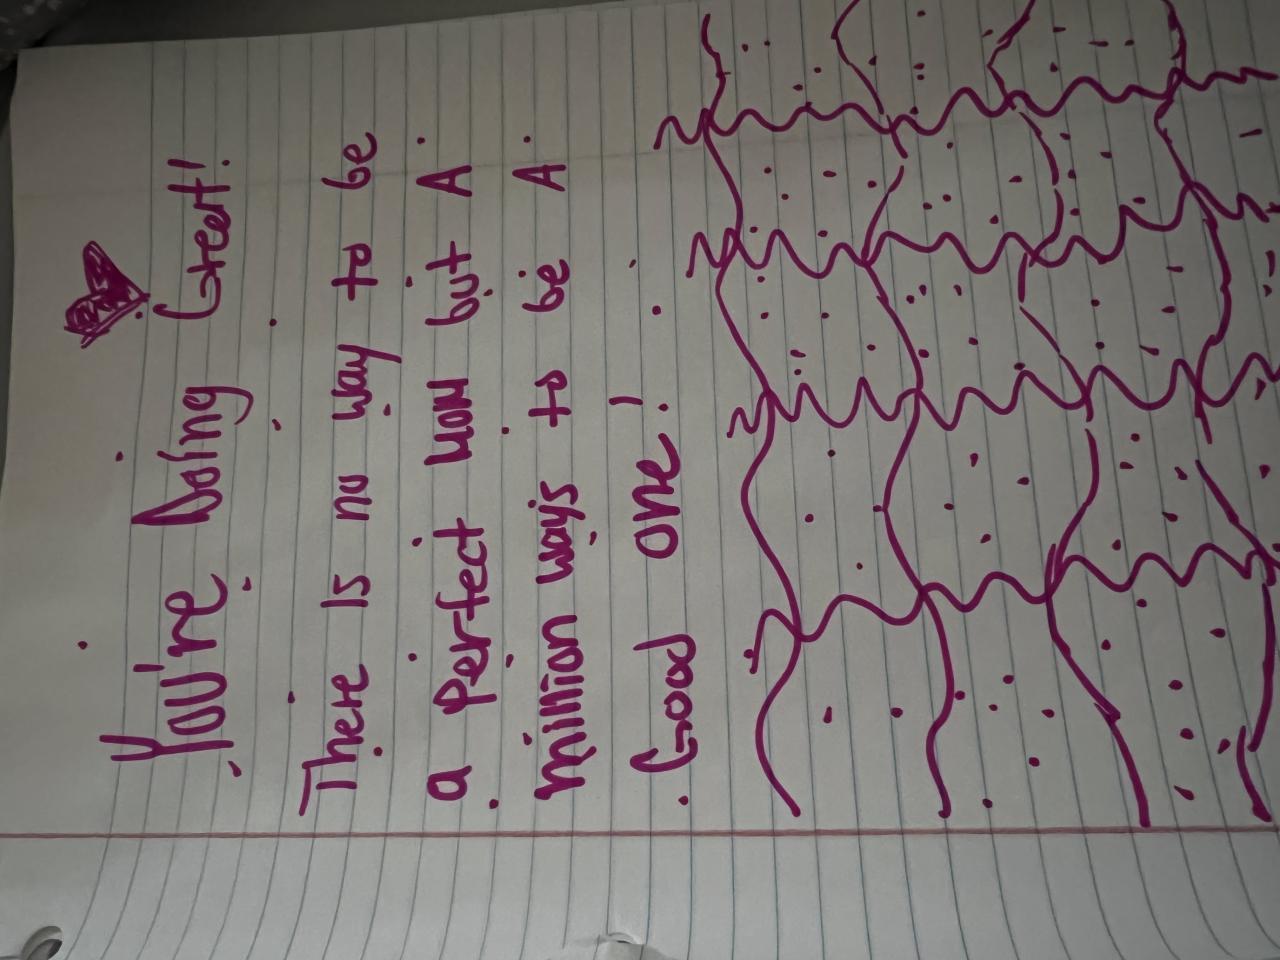 You're Doing Great!
There is no way to be
a Perfect mom but A
million ways to be A
Good one!